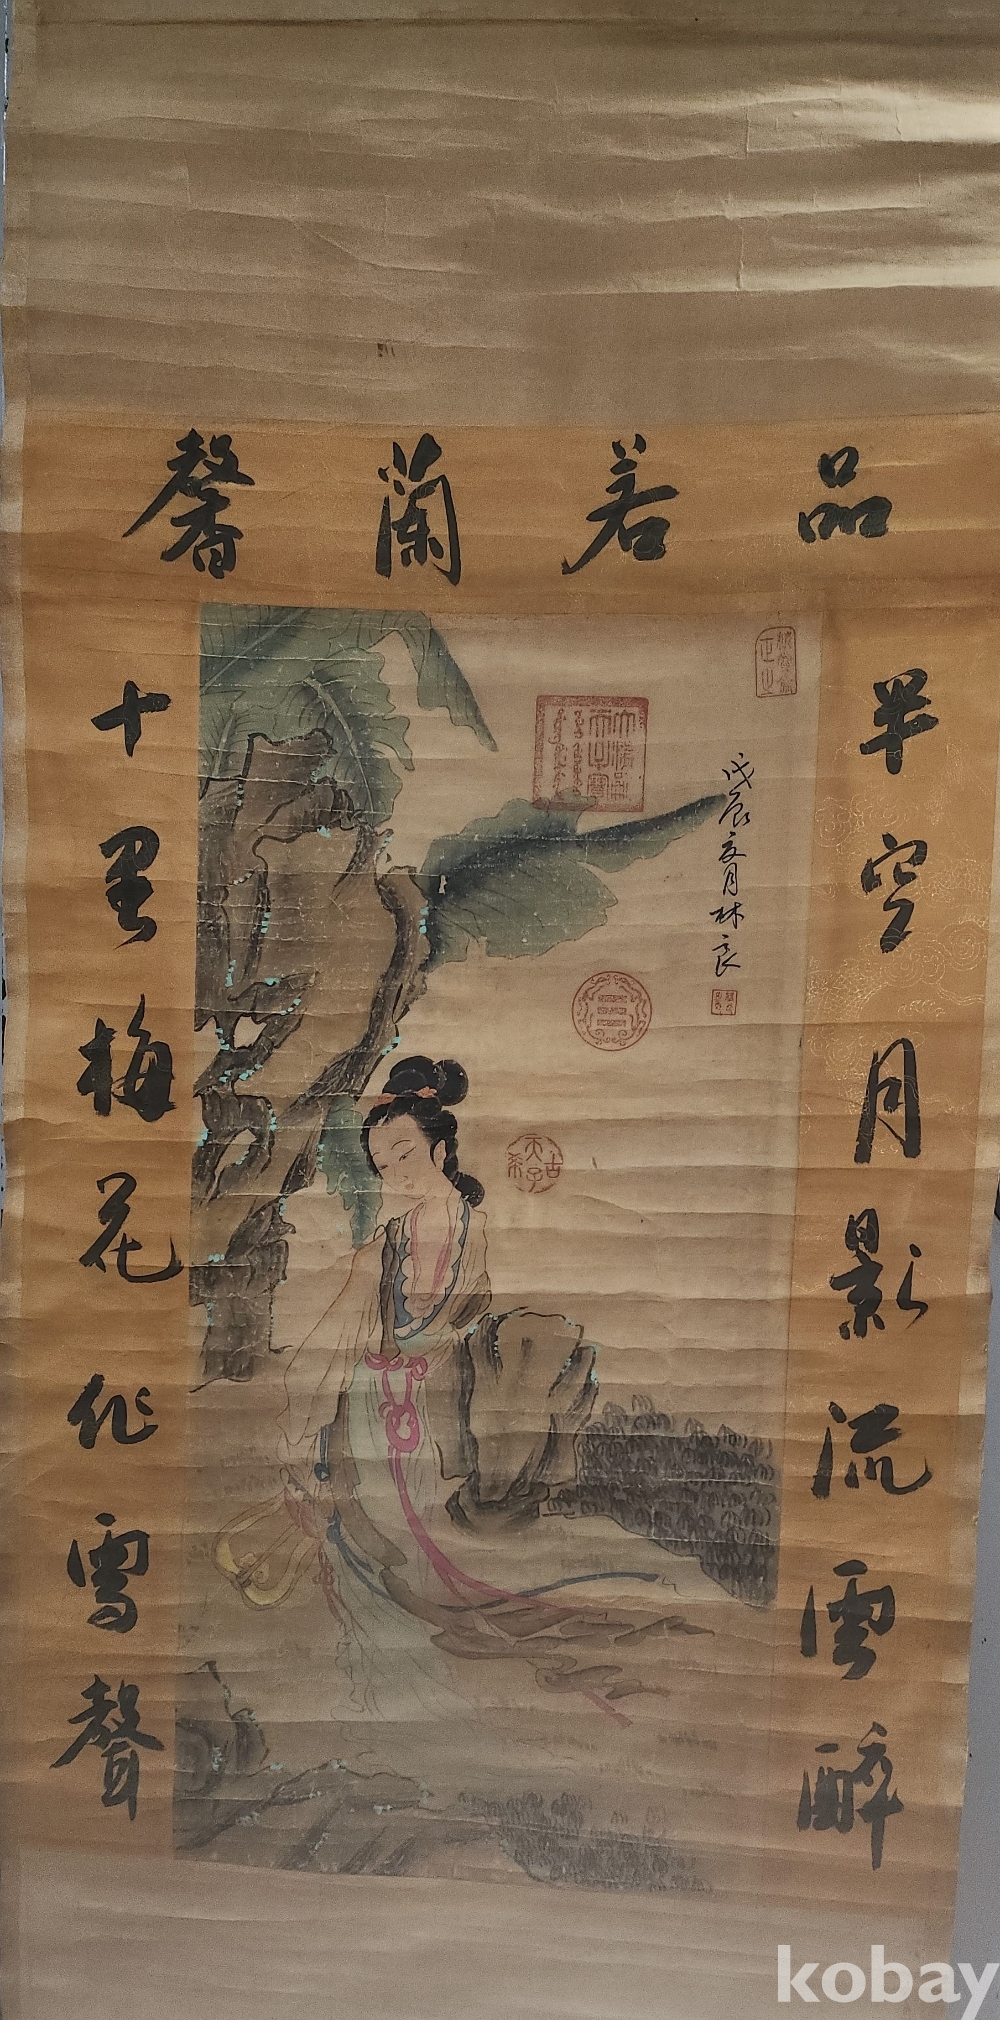 品若蘭馨
半空月影流雲醉
十里梅花作雪聲
戊辰 月林良
古希天子
kobay